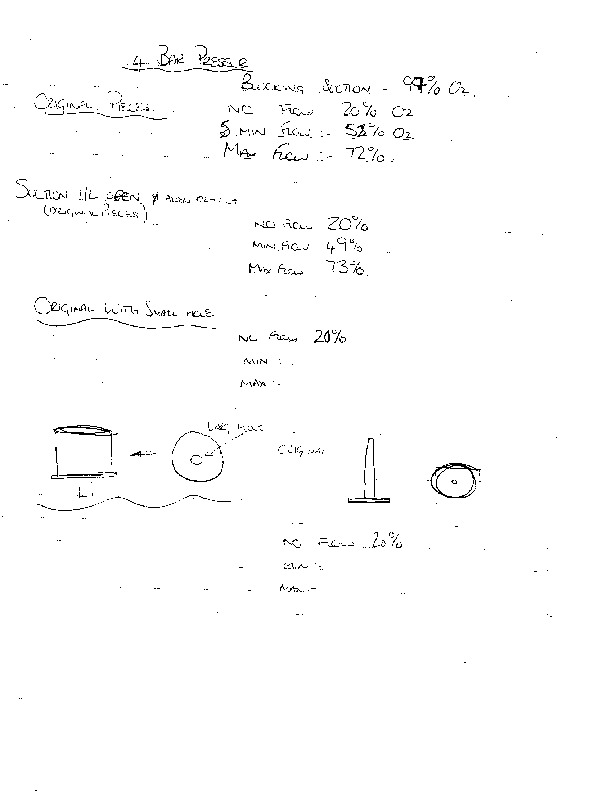 4 BAR PRESSUE
BLOCKING SUCTION - 97% O2.
ORIGINAL PIECES.
NO FLOW 20% O2
MIN FLOW :- 52% O2.
MAX FLOW :- 72%.
SUCTION I/L OPEN &
(ORIGINAL PIECES)
NO FLOW 20%
MIN FLOW 49%
MAX FLOW 73%.
ORIGINAL WITH SMALL HOLE
NO FLOW 20%
MIN :-
MAX :-
LARG HOLE
ORIGINAL
NO FLOW 20%
MIN :-
MAX :-